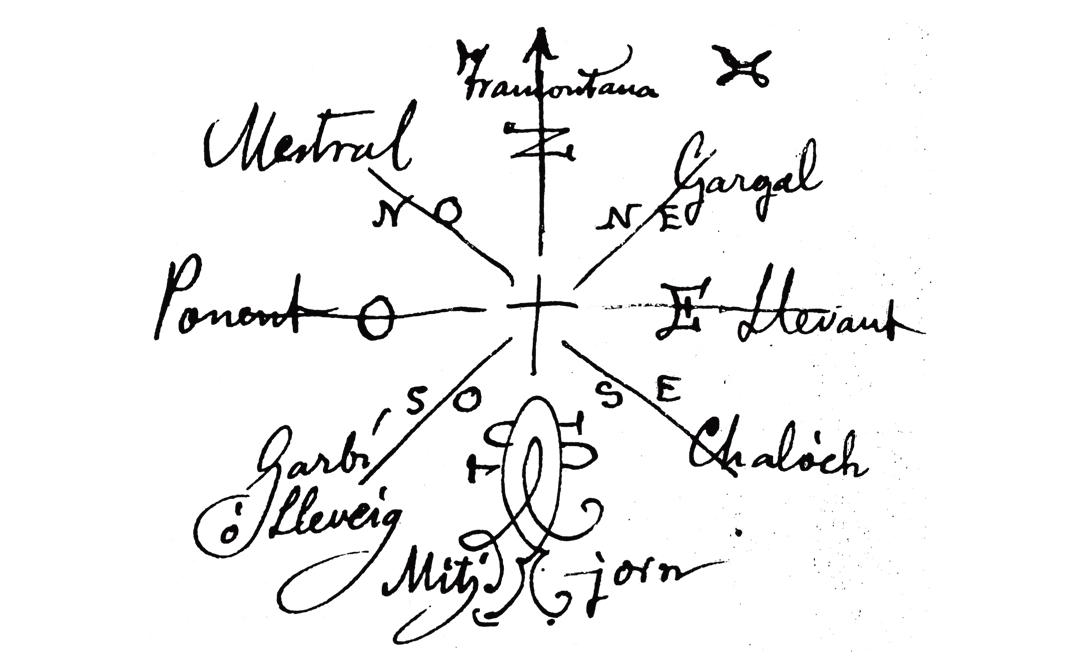 Tramontana
N
Mestral
Gargal
N O
N E
Ponent O
E Llevant
S O
S E
Garbí
ó Lleveig
Chalòch
Mitj jorn